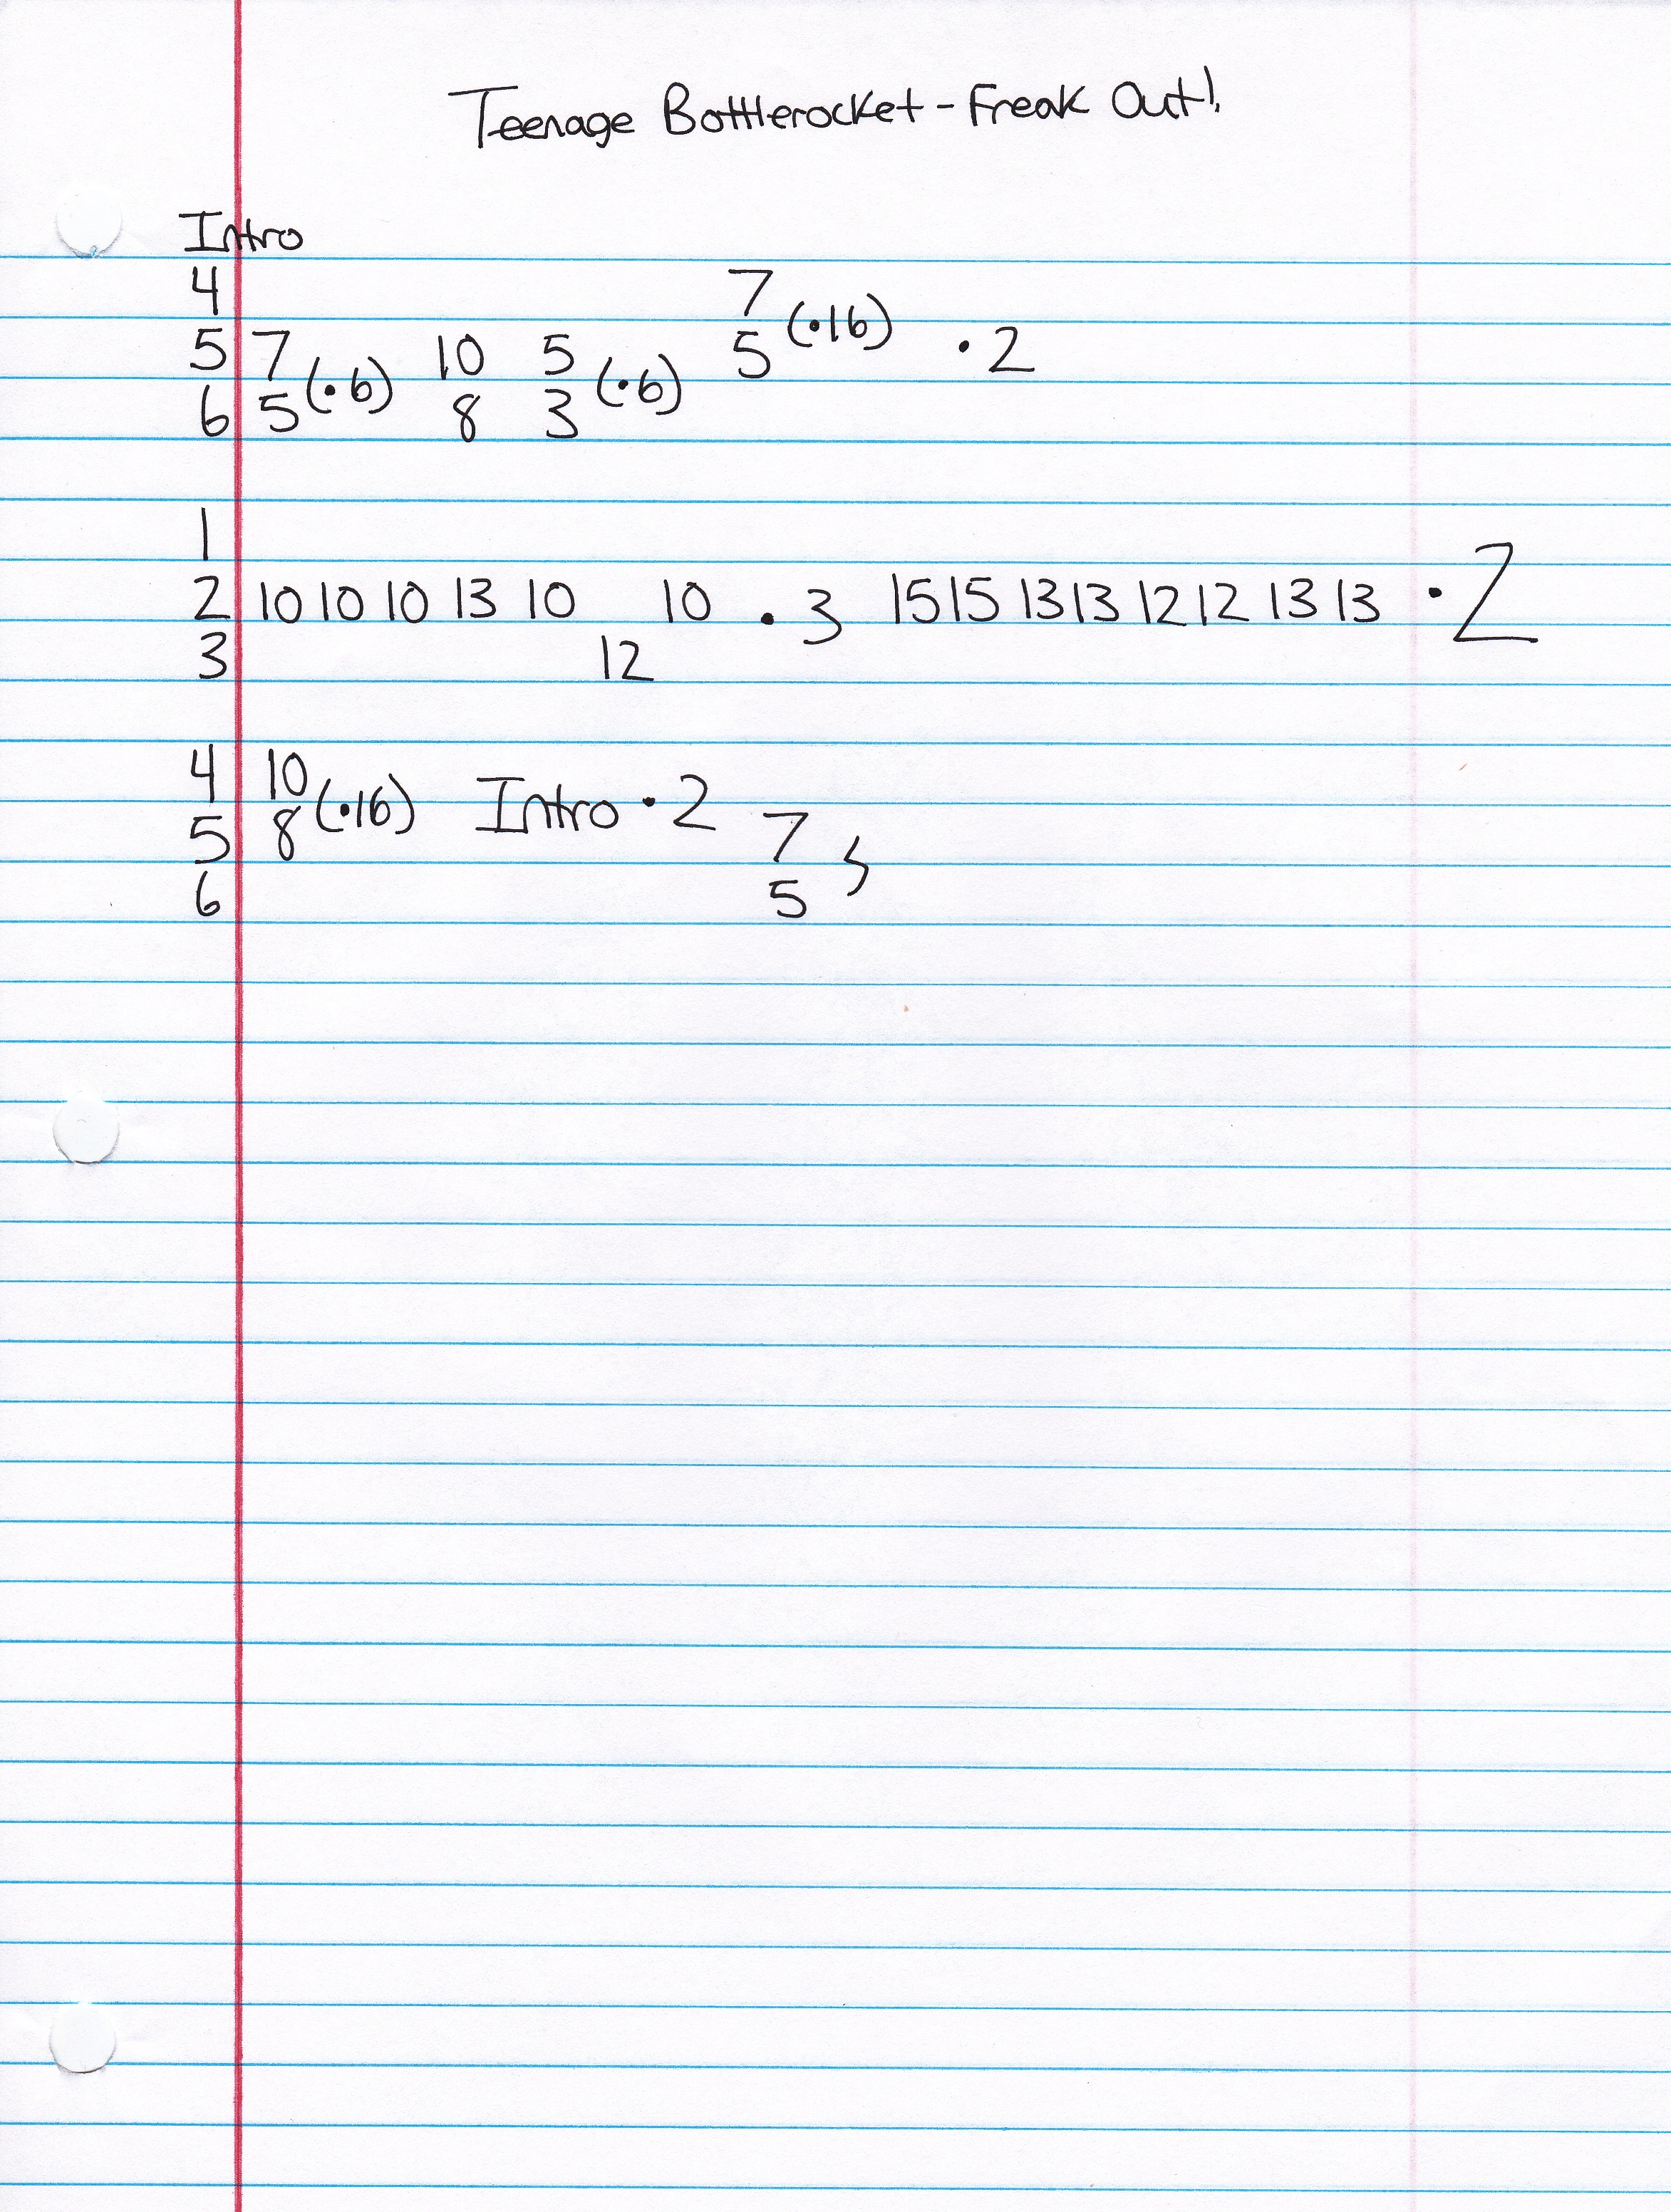 Teenage Bottlerocket - Freak Out!
Intro
4 7
5 7 10 5 5 (·16) ·2
6 5 (·6) 8 3 (·6)
1
2 10 10 10 13 10 10 · 3 15 15 13 13 12 12 13 13 · 2
3 12
4 10
5 8 (·16) Intro · 2 7
6 5